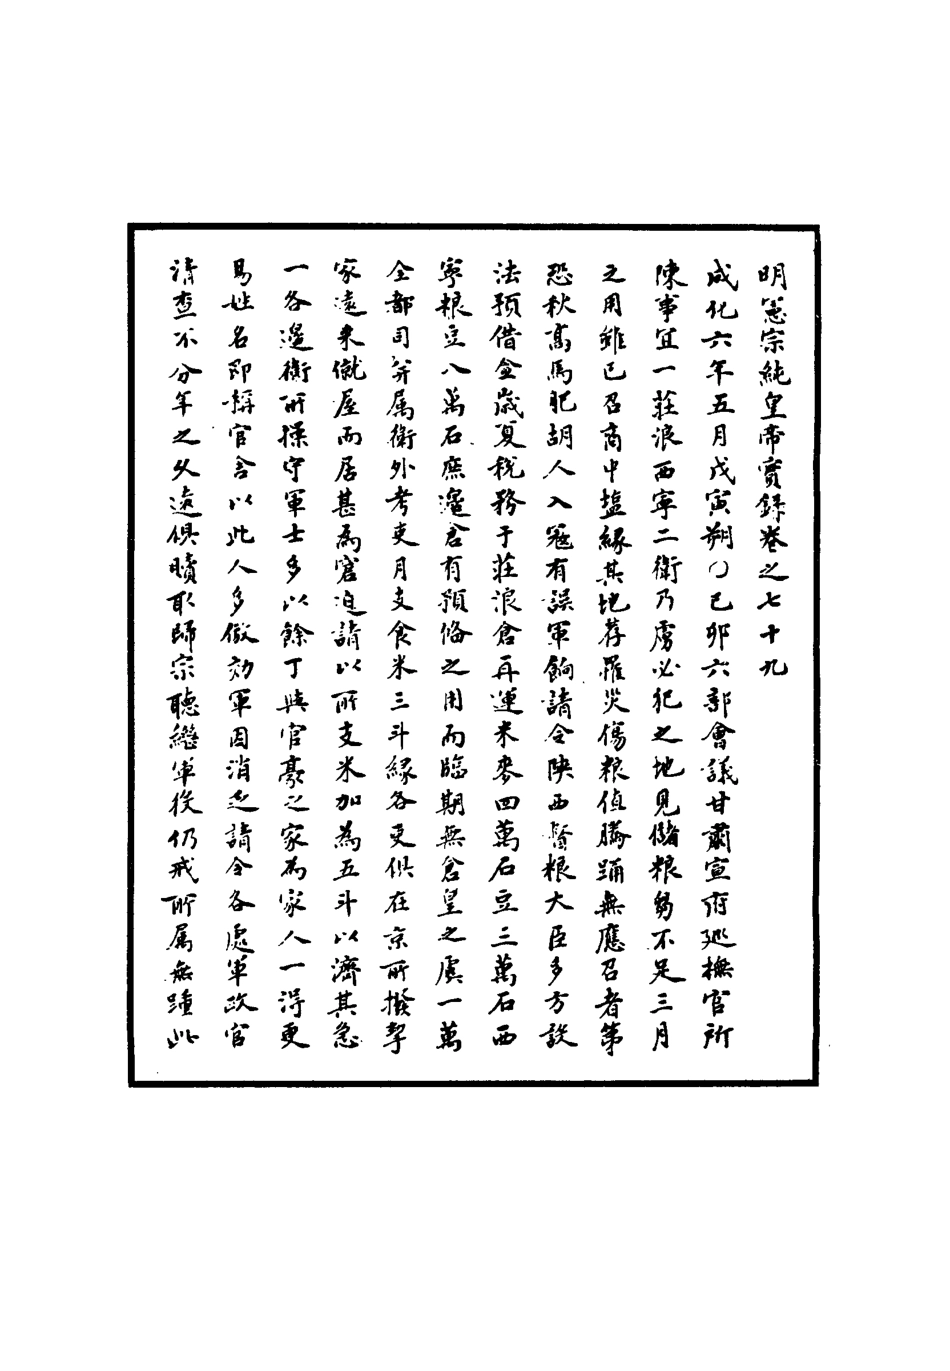 明憲宗純皇帝實錄卷之七十九
成化六年五月戊寅朔〇己卯六部會議甘肅宣府廵撫官所
陳事宜一莊浪西寧二衛乃虜必犯之地見儲粮芻不足三月
之用雖已召商中塩緣其地荐罹災傷粮價騰踊無應召者第
恐秋髙馬肥胡人入冦有誤軍餉請令陝西督粮大臣多方設
法預借金歲夏税務于莊浪倉再運米麥四萬石豆三萬石西
寧粮豆八萬石庶邊倉有預俻之用而臨期無倉皇之虞一萬
全都司并属衛外考吏月支食米三斗緣各吏俱在京所撥挈
家遠来僦屋而居甚為窘迫請以所支米加為五斗以濟其急
一各邊衛所操守軍士多以餘丁與官豪之家為家人一得更
易姓名即稱官舍以此人多傚効軍因消乏請令各處軍政官
清查不分年之久遠俱贖取歸宗聽繼軍役仍戒所属無踵此